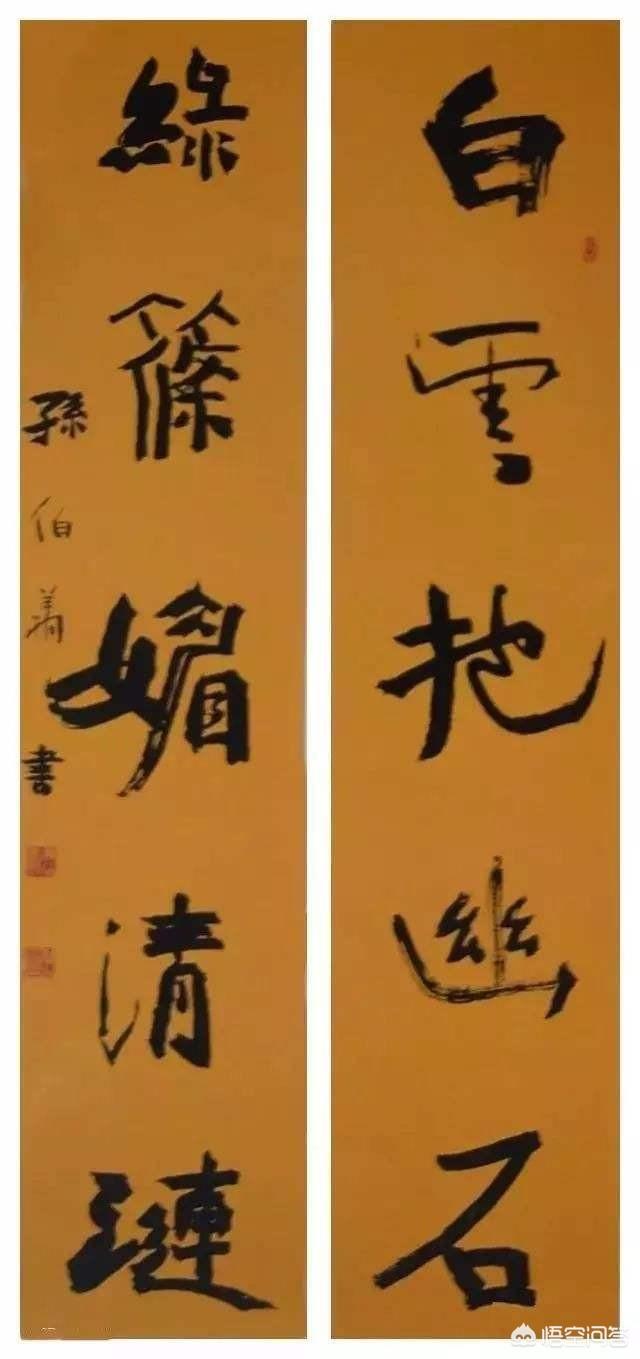 白雲抱幽石
綠篠媚清漣
孫伯翔書
悟空问答